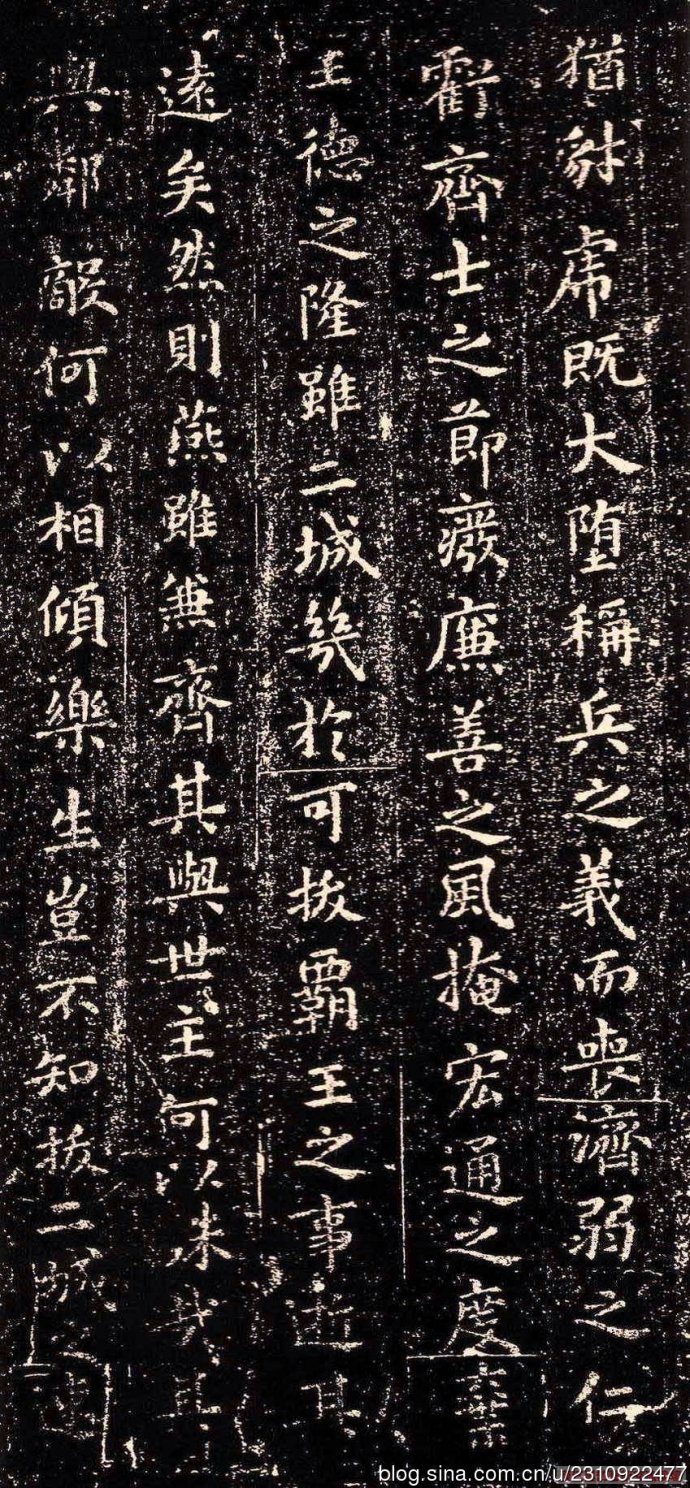 猶豺虎既大堕稱兵之義而喪濟弱之仁
虧齊士之節廢廉善之風掩宏通之度棄
王德之隆雖二城幾於可拔霸王之事逝其
遠矣然則燕雖兼齊其與世主何以殊哉其
與鄰敵何以相傾樂生豈不知拔二城之速
blog.sina.com.cn/u/2310922477